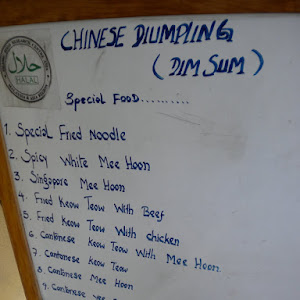 حلال
HALAL
CHINESE DIUMPLING
( DIM SUM )
Special FOOD..........
1. Special Fried Noodle
2. Spicy White Mee Hoon
3. Singapore Mee Hoon
4. Fried Keow Teow With Beef
5. Fried Keow Teow With chicken
6. Cantonese Keow Teow With Mee Hoon
7. Cantonese Keow Teow
8. Cantonese Mee Hoon
9. Cantonese